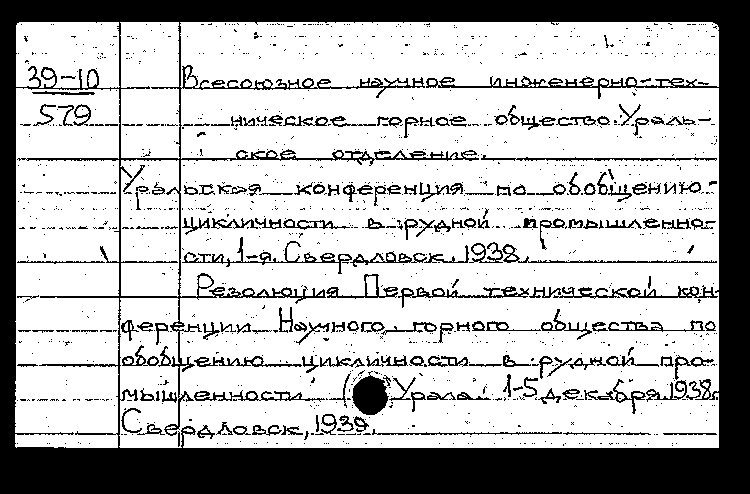 39-10
579
Всесоюзное научное инженерно-тех-
ническое горное общество. Ураль-
ское отделение.
Уральская конференция по обобщению
цикличности в рудной промышленно-
сти, 1-я. Свердловск. 1938.
Резолюция Первой технической кон-
ференции Научного горного общества по
обобщению цикличности в рудной про-
мышленности Урала. 1-5 декабря 1938.
Свердловск, 1939.